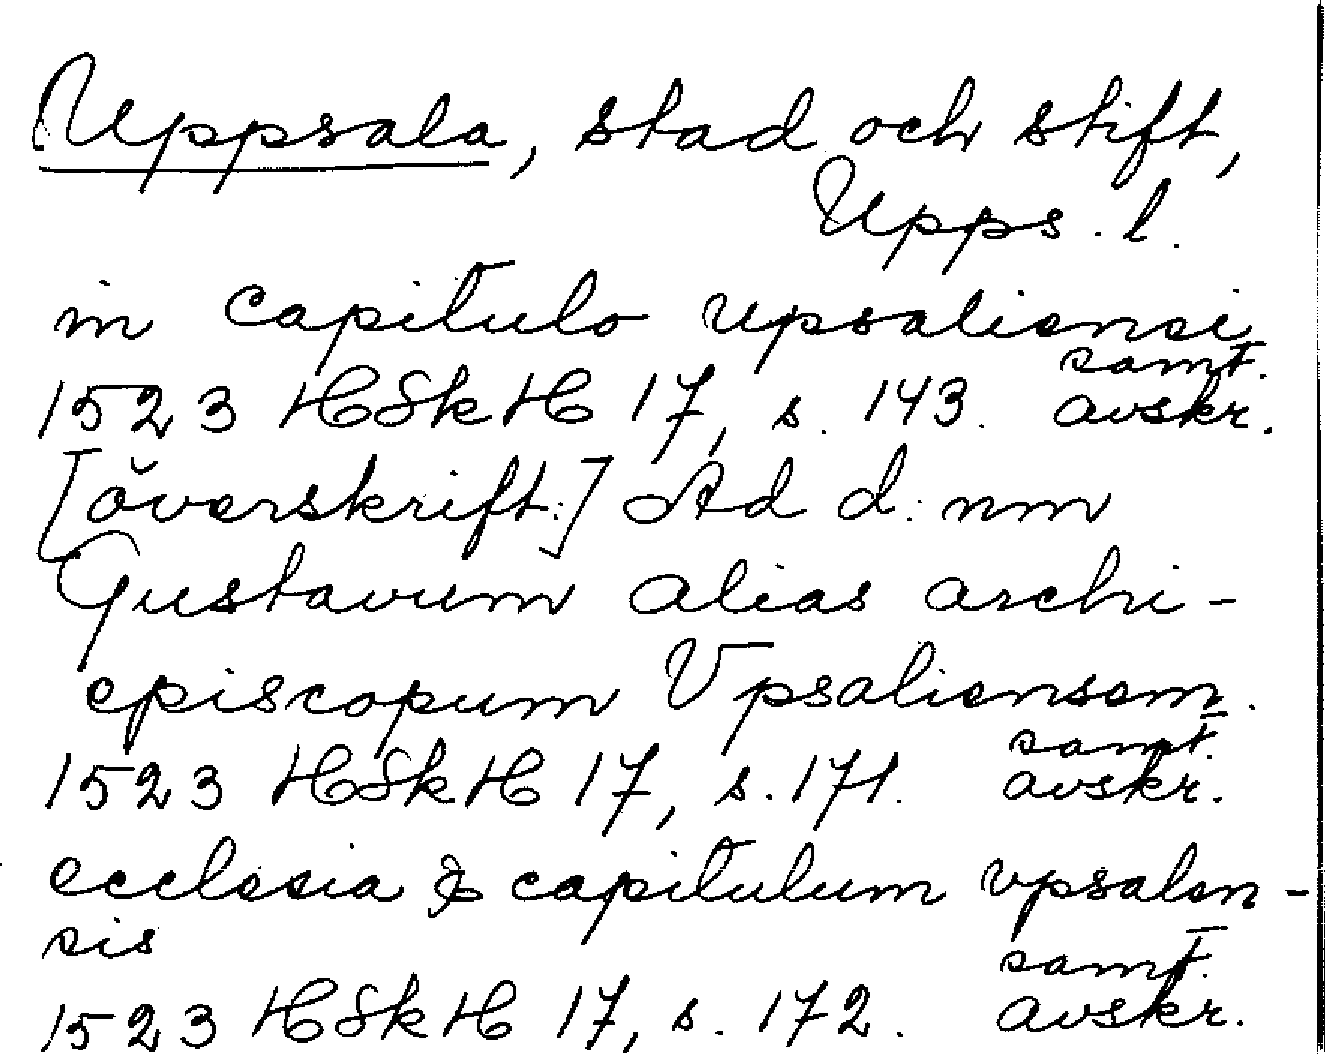 Uppsala, stad och stift,
Upps. l.
in capitulo upsaliensi
samt.
1523 HSkH 17, s. 143. avskr.
[överskrift:] Ad d: nm
Gustavum alias archi-
episcopum Vpsaliensem.
samt.
1523 HSkH 17, s. 171. avskr.
ecclesia & capitulum vpsalen-
sis
samt.
1523 HSkH 17, s. 172. avskr.